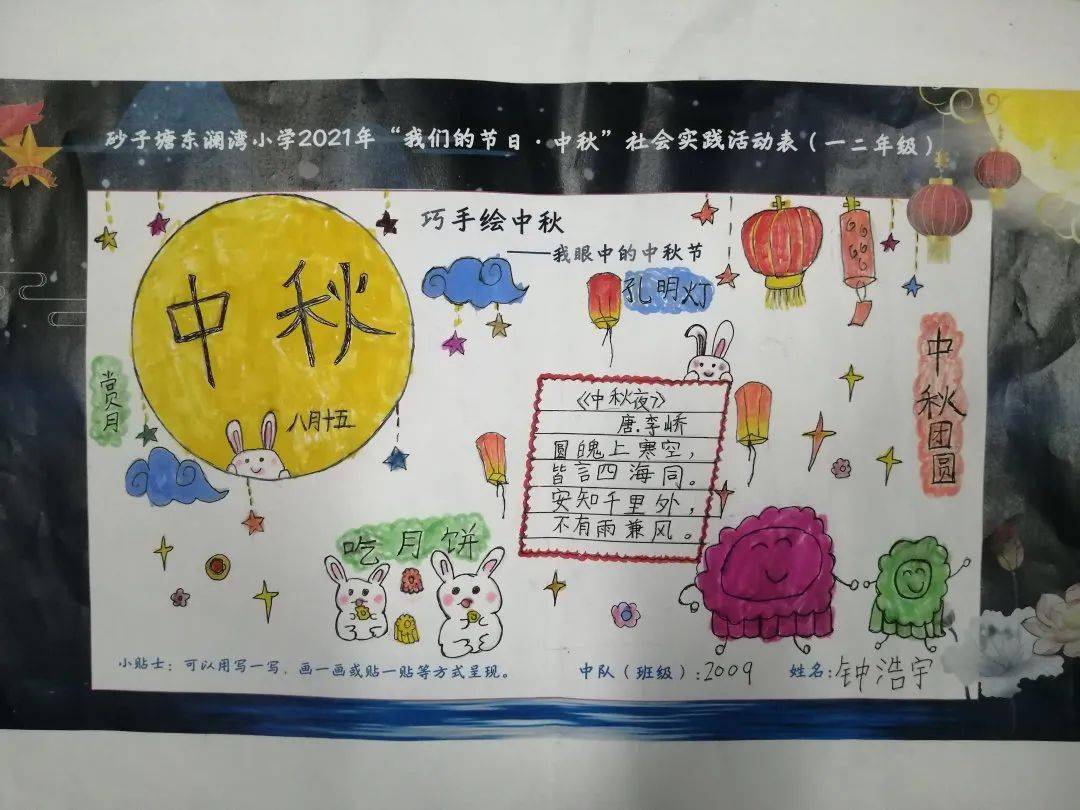 砂子塘东澜湾小学2021年“我们的节日·中秋”社会实践活动表（一二年级）
巧手绘中秋
——我眼中的中秋节
中秋
八月十五
赏月
孔明灯
《中秋夜》
唐.李峤
圆魄上寒空，
皆言四海同。
安知千里外，
不有雨兼风。
中秋团圆
吃月饼
小贴士：可以用写一写、画一画或贴一贴等方式呈现。
中队（班级）:2009
姓名:钟浩宇